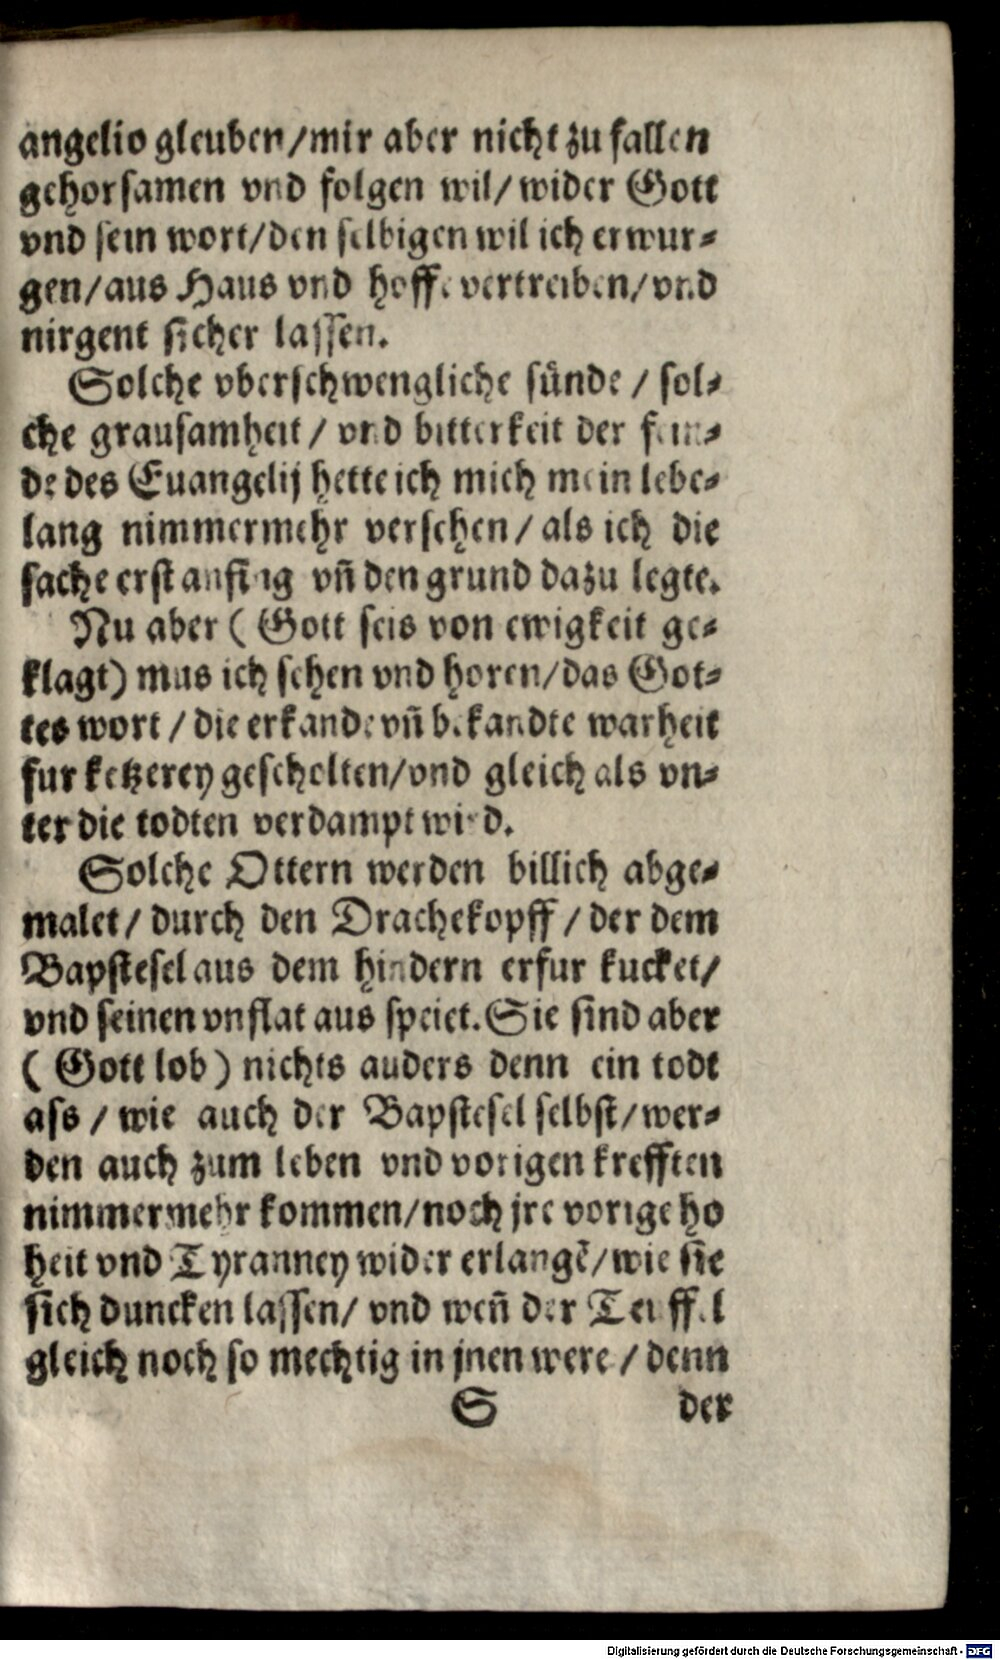 angelio gleuben/mir aber nicht zu fallen
gehorsamen vnd folgen wil/ wider Gott
vnd sein wort/den selbigen wil ich erwur⸗
gen/aus Haus vnd hoffe vertreiben/vnd
nirgent sicher lassen.
Solche vberschwengliche sünde / sol⸗
che grausamheit / vnd bitterkeit der fein⸗
de des Euangelij hette ich mich mein lebe⸗
lang nimmermehr versehen / als ich die
sache erst anfing vñ den grund dazu legte.
Nu aber ( Gott seis von ewigkeit ge⸗
klagt) mus ich sehen vnd horen/das Got⸗
tes wort / die erkande vñ bekandte warheit
fur ketzerey gescholten/vnd gleich als vn⸗
ter die todten verdampt wird.
Solche Ottern werden billich abge⸗
malet / durch den Drachekopff / der dem
Bapstesel aus dem hindern erfur kucket/
vnd seinen vnflat aus speiet. Sie sind aber
( Gott lob ) nichts auders denn ein todt
ass / wie auch der Bapstesel selbst/wer⸗
den auch zum leben vnd vorigen krefften
nimmermehr kommen/noch jre vorige ho
heit vnd Tyranney wider erlangē/wie sie
sich duncken lassen/ vnd weñ der Teuffel
gleich noch so mechtig in jnen were / denn
S der
Digitalisierung gefördert durch die Deutsche Forschungsgemeinschaft - DFG